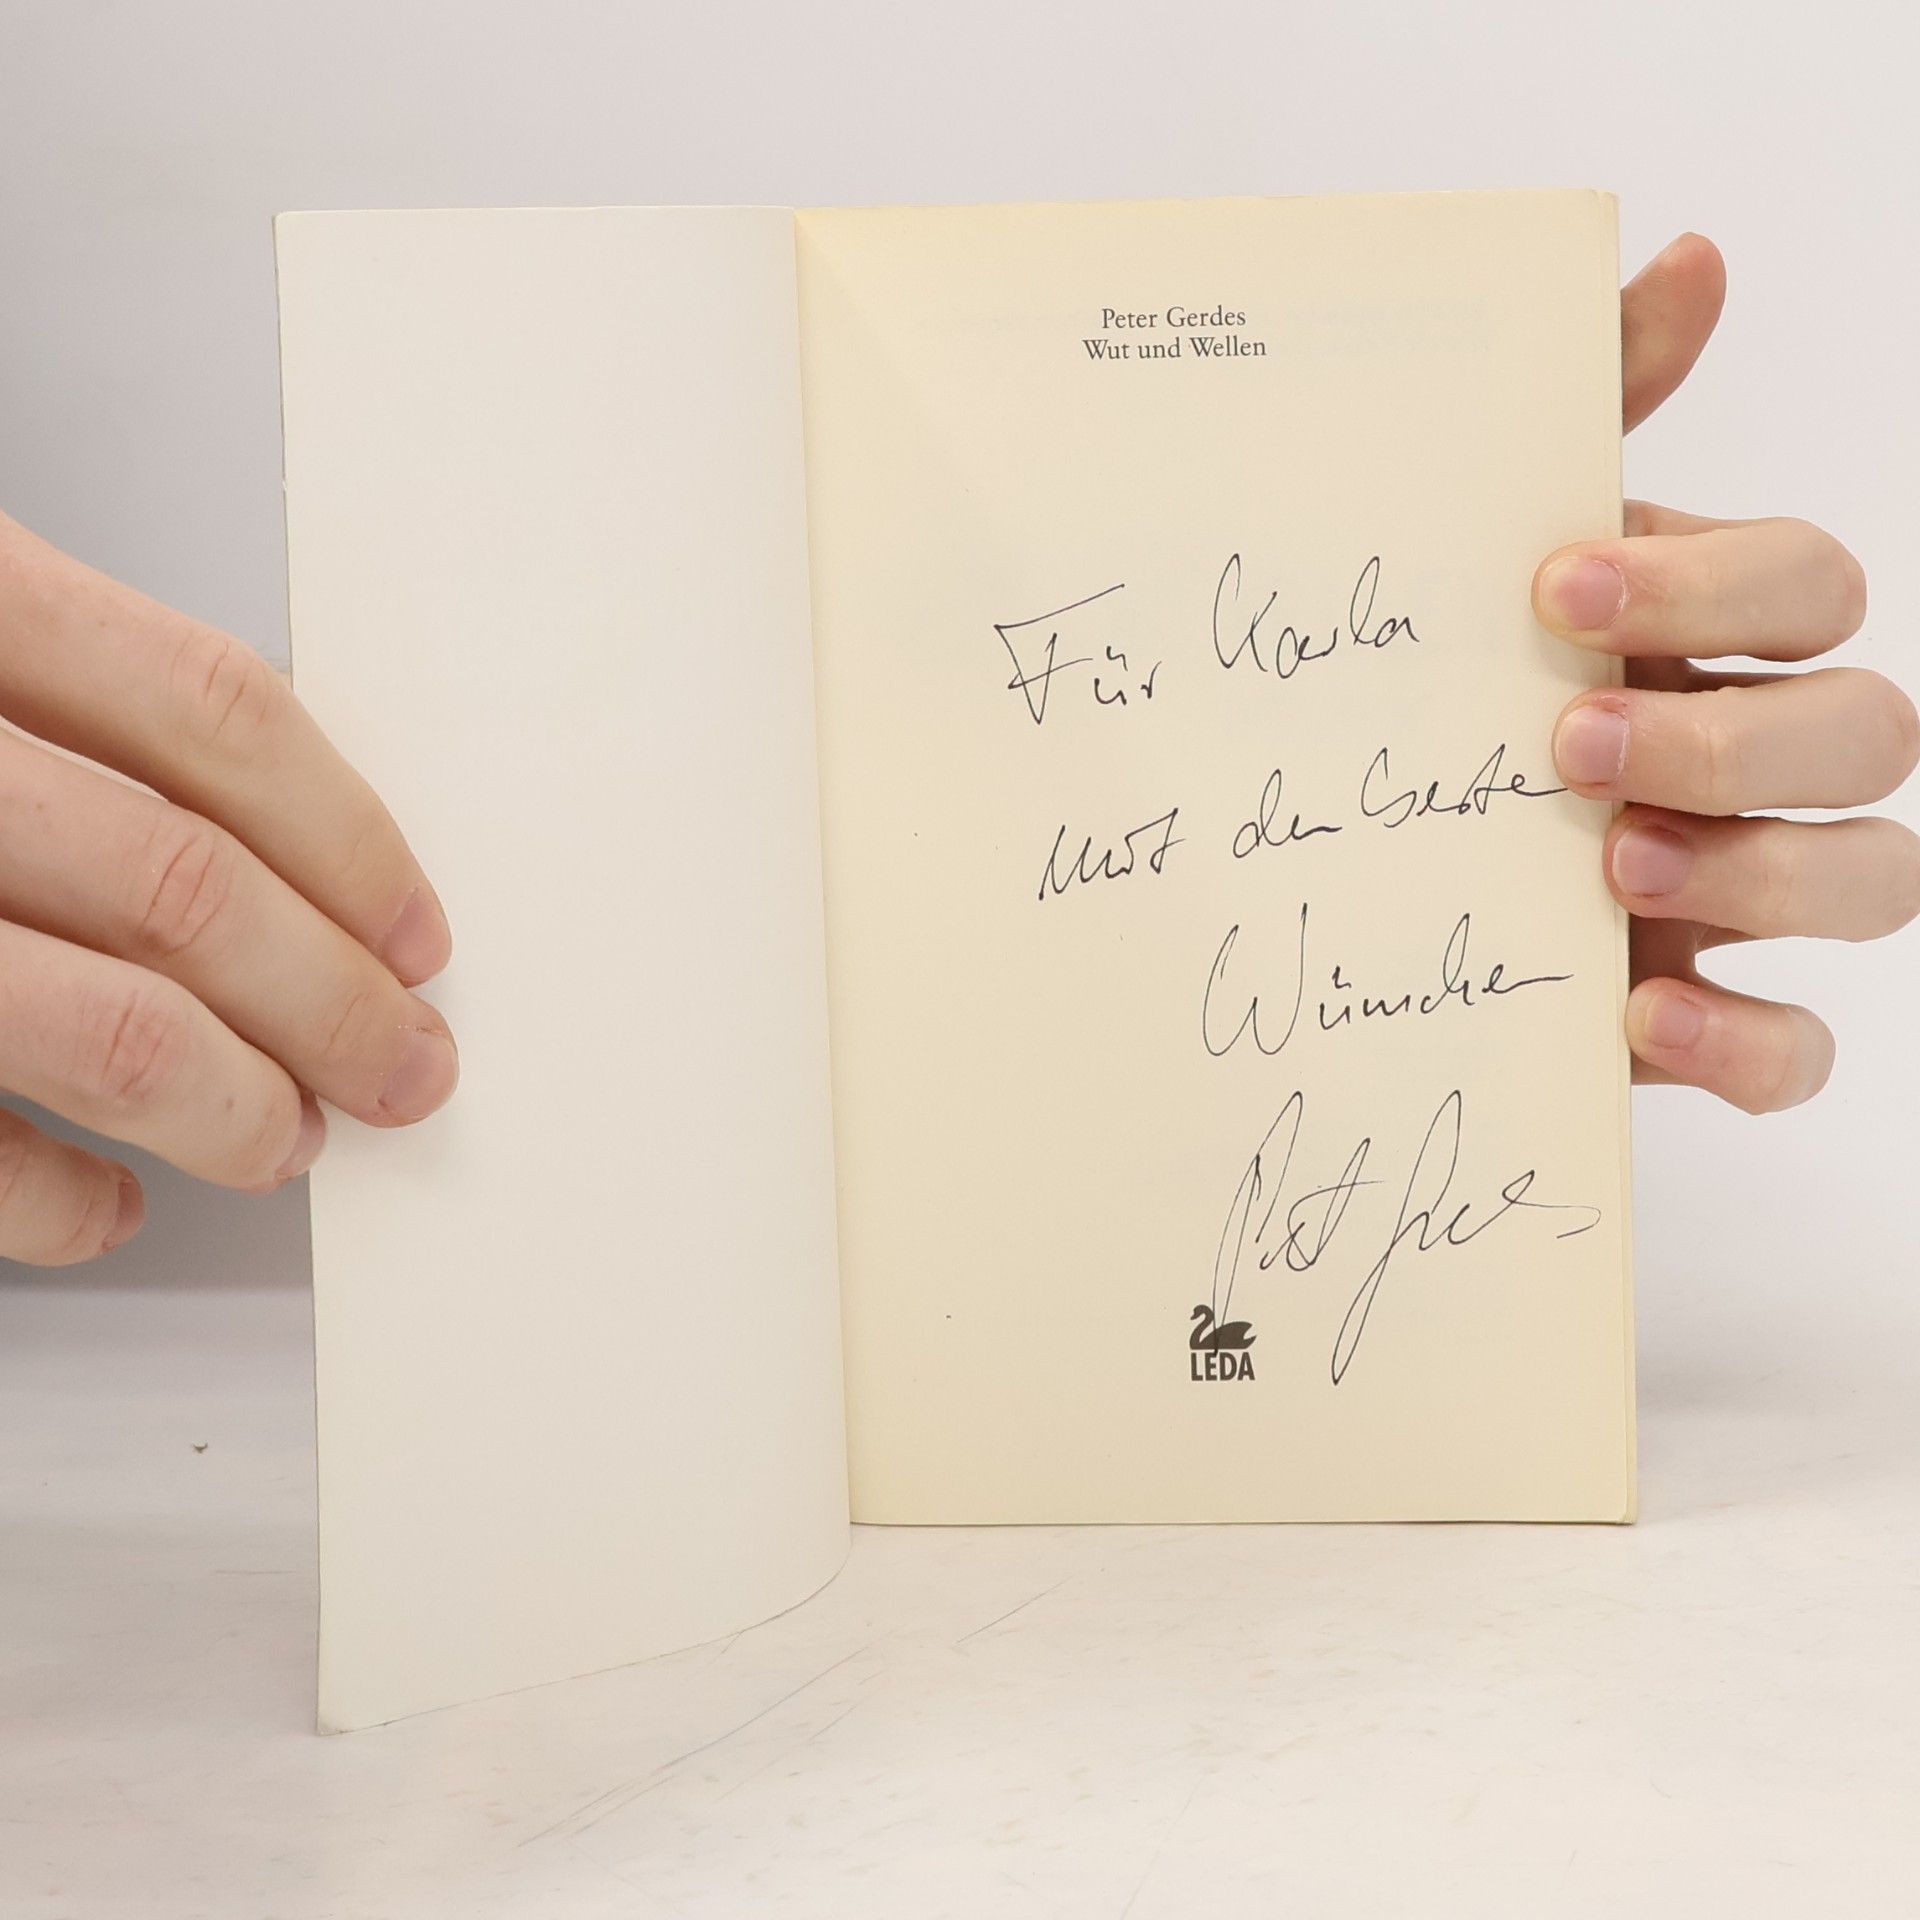 Peter Gerdes
Wut und Wellen
Für Karla
mit den besten
Wünschen
Peter Gerdes
LEDA